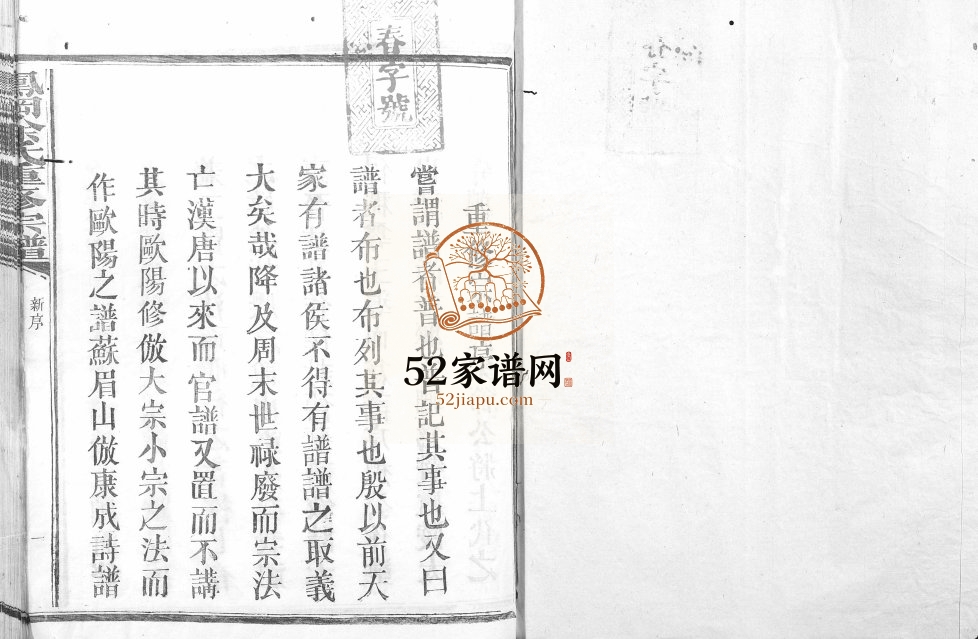 春字號
重修宗譜
嘗謂譜者普也普記其事也又曰
譜者布也布列其事也殷以前天
家有譜諸侯不得有譜譜之取義
大矣哉降及周末世祿廢而宗法
亡漢唐以來而官譜又置而不講
其時歐陽修倣大宗小宗之法而
作歐陽之譜蘇眉山倣康成詩譜
氏重修宗譜
新序
一
52家谱网
52jiapu.com